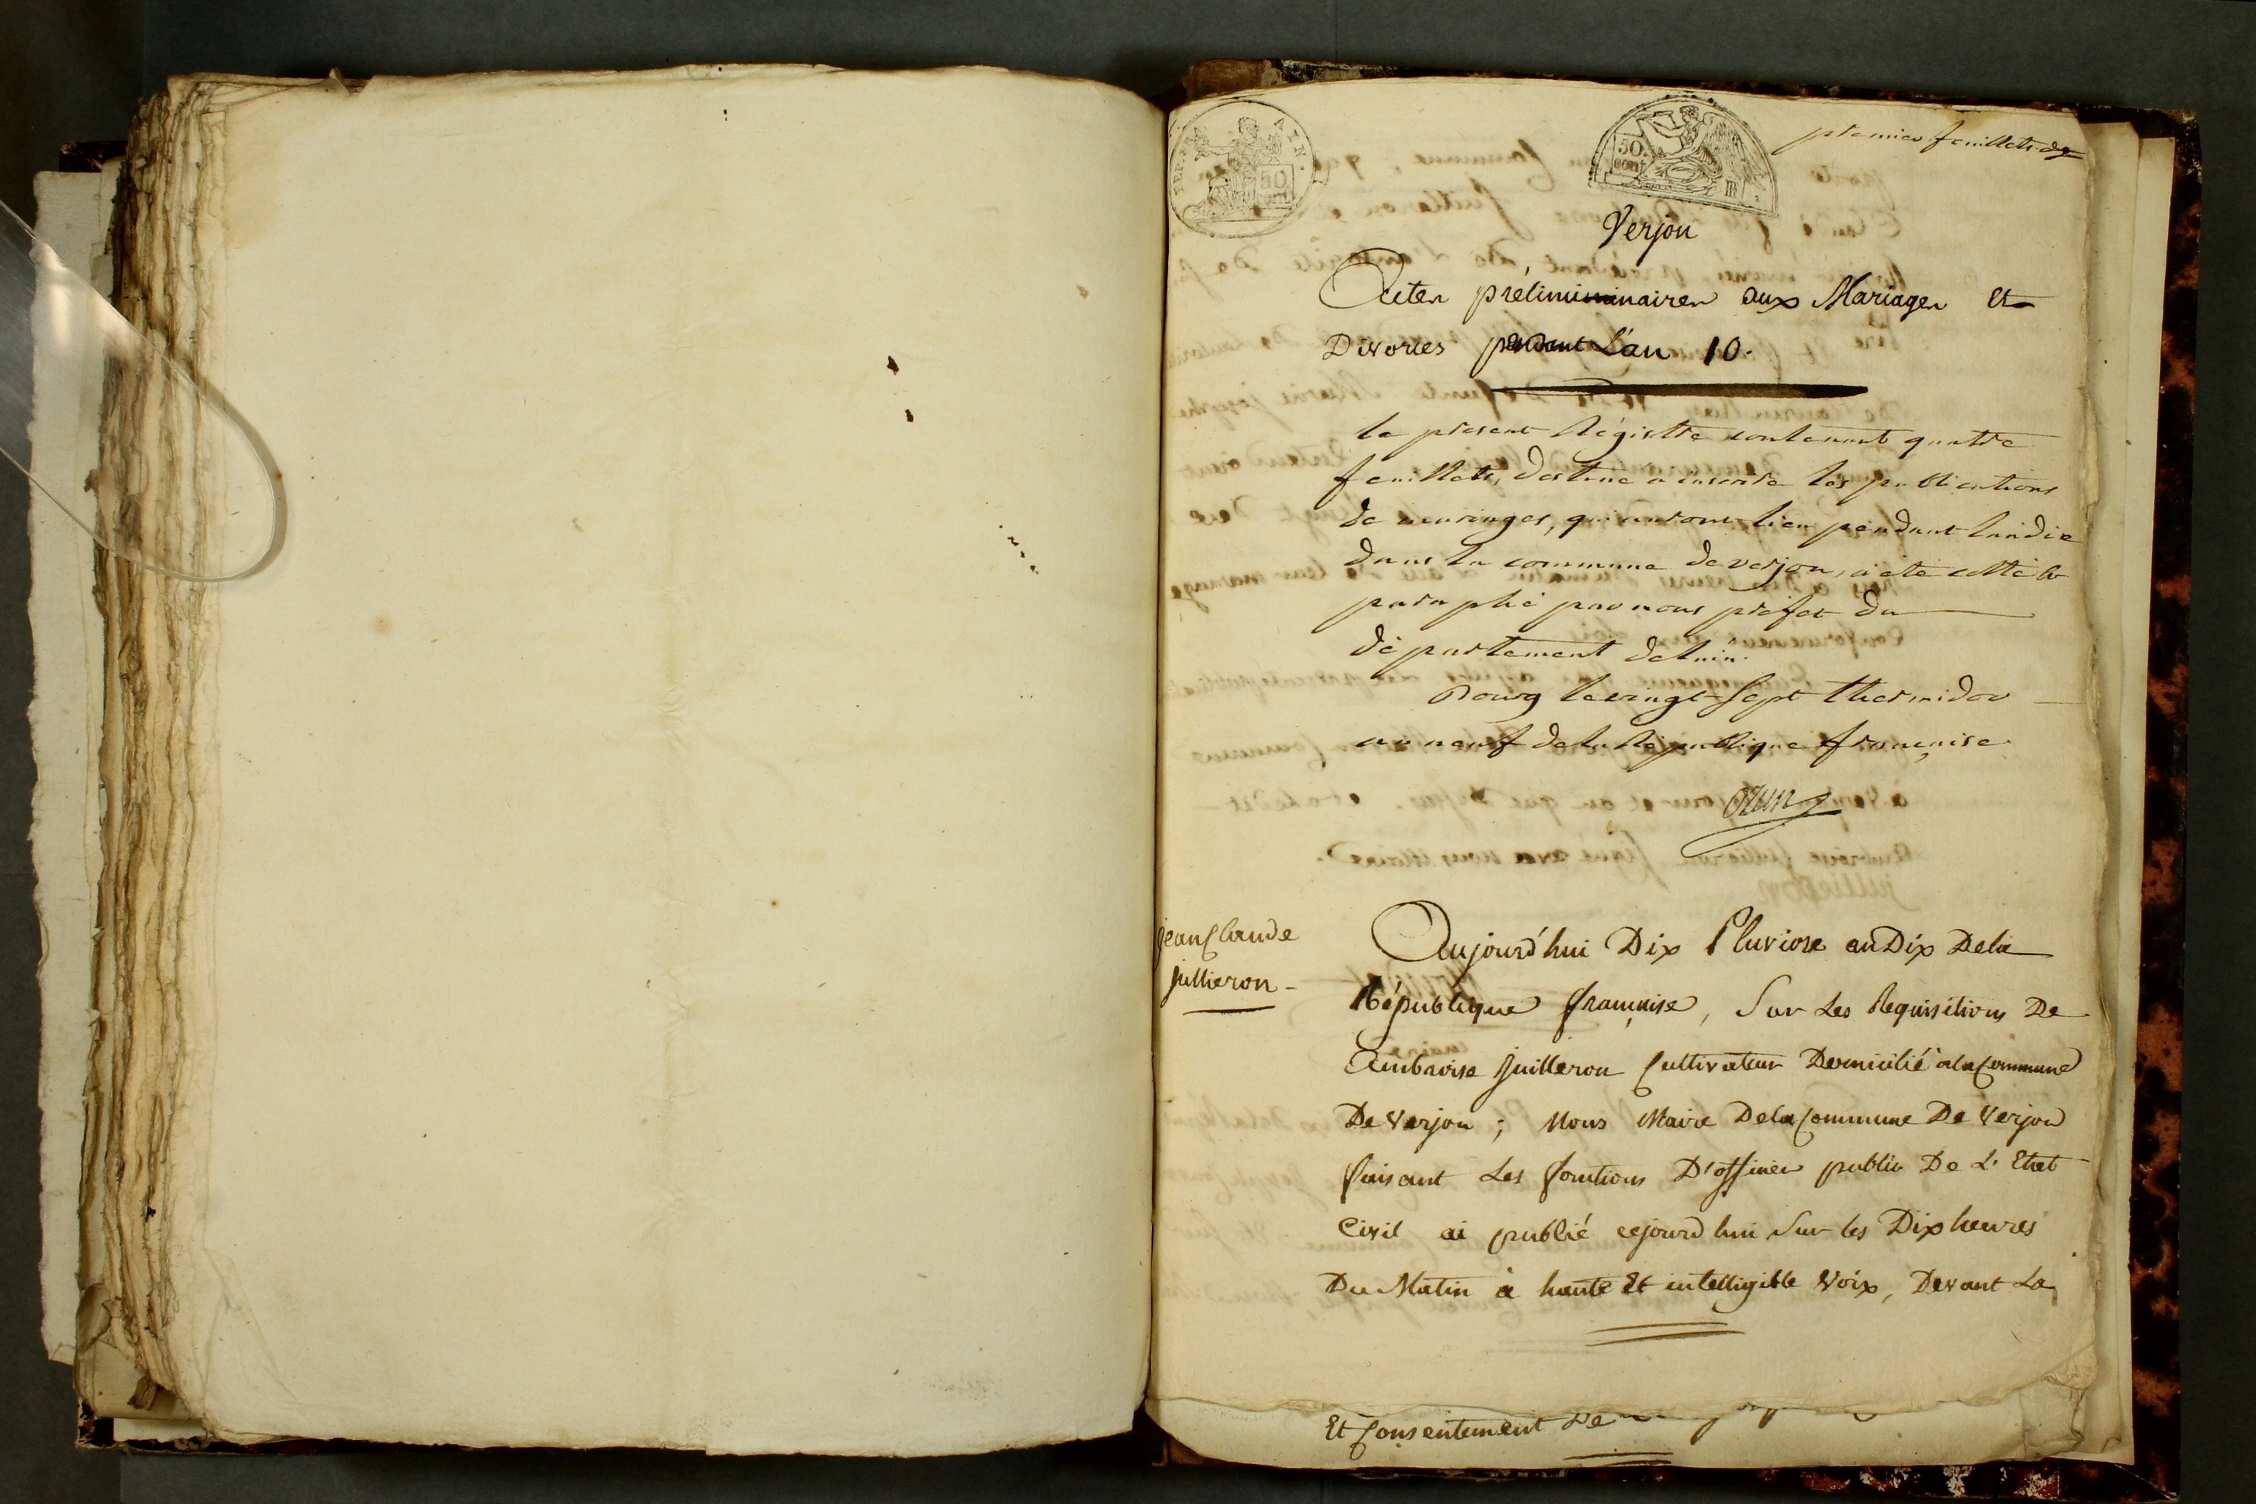 premier feuillet
50.
cent
AIN.
50
cent
Verjon
Actes préliminminaires aux Mariages Et
Divorces pendant L'an 10.
le present Régistre contenant quatre
feuillets, destiné a inscrire les publications
de mariages, qui auront lieu pendant l'an dix
dans la commune de verjon, a été cotté &
paraphé par nous préfet du
département de l'ain.
Bourg le vingt Sept thermidor
an neuf de la République françaisse
Ozun
Jean Claude
Jullieron
Aujourd'hui Dix Pluviose an Dix De la
République française, Sur Les Requisitions De
Ambroise Juilleron Cultivateur Domicilié a la Commune
De Verjon; Nous Maire De la Commune De Verjon
faisant Les fonctions D'officier public De L'Etat
Civil ai publié cejourd'hui Sur les Dix heures
Du Matin à haute Et intelligible Voix, Devant La
Et Consentement De